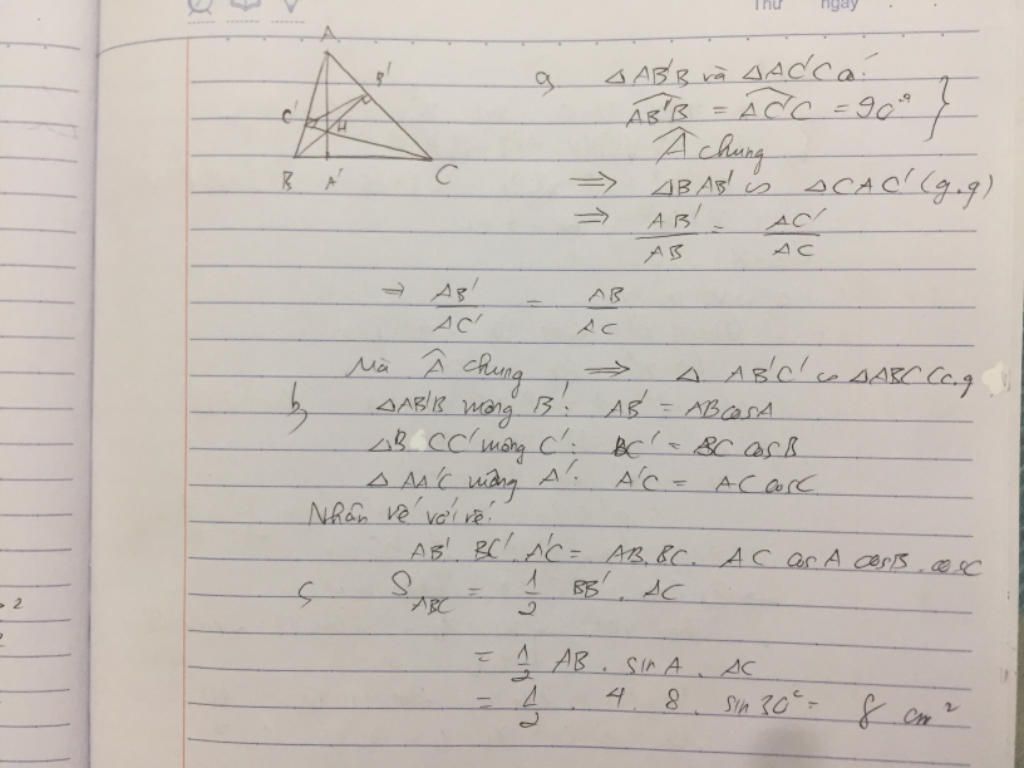 Thứ ngày
A
B'
C'
H
B A' C
a, ΔAB'B và ΔAC'C có:
\widehat{AB'B} = \widehat{AC'C} = 90° }
 chung
⇒ ΔBAB' ∽ ΔCAC' (g.g)
⇒ AB'/AB = AC'/AC
⇒ AB'/AC' = AB/AC
Mà  chung ⇒ Δ AB'C' ∽ ΔABC (c.g
b, ΔAB'B vuông B': AB' = AB cosA
ΔB CC' vuông C': BC' = BC cosB
Δ AA'C vuông A': A'C = AC cosC
Nhân vế với vế:
AB'. BC'. A'C = AB. BC. AC cosA cosB. cosC
S_{ABC} = 1/2 BB'. AC
= 1/2 AB. sinA. AC
= 1/2 . 4 . 8 . sin30° = 8 cm²
2